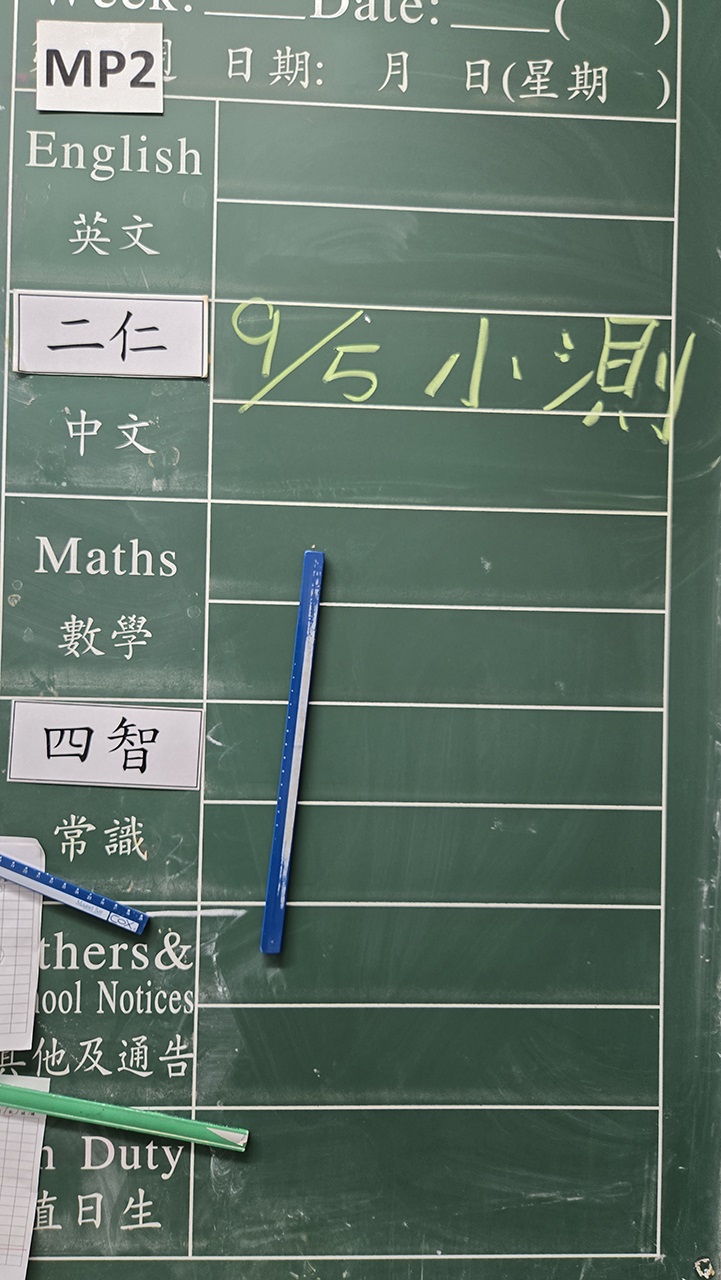 Week: Date: ( )
MP2 週 日期: 月 日(星期 )
English
英文
二仁 9/5 小測
中文
Maths
數學
四智
常識
COX
thers&
ool Notices
其他及通告
Duty
值日生